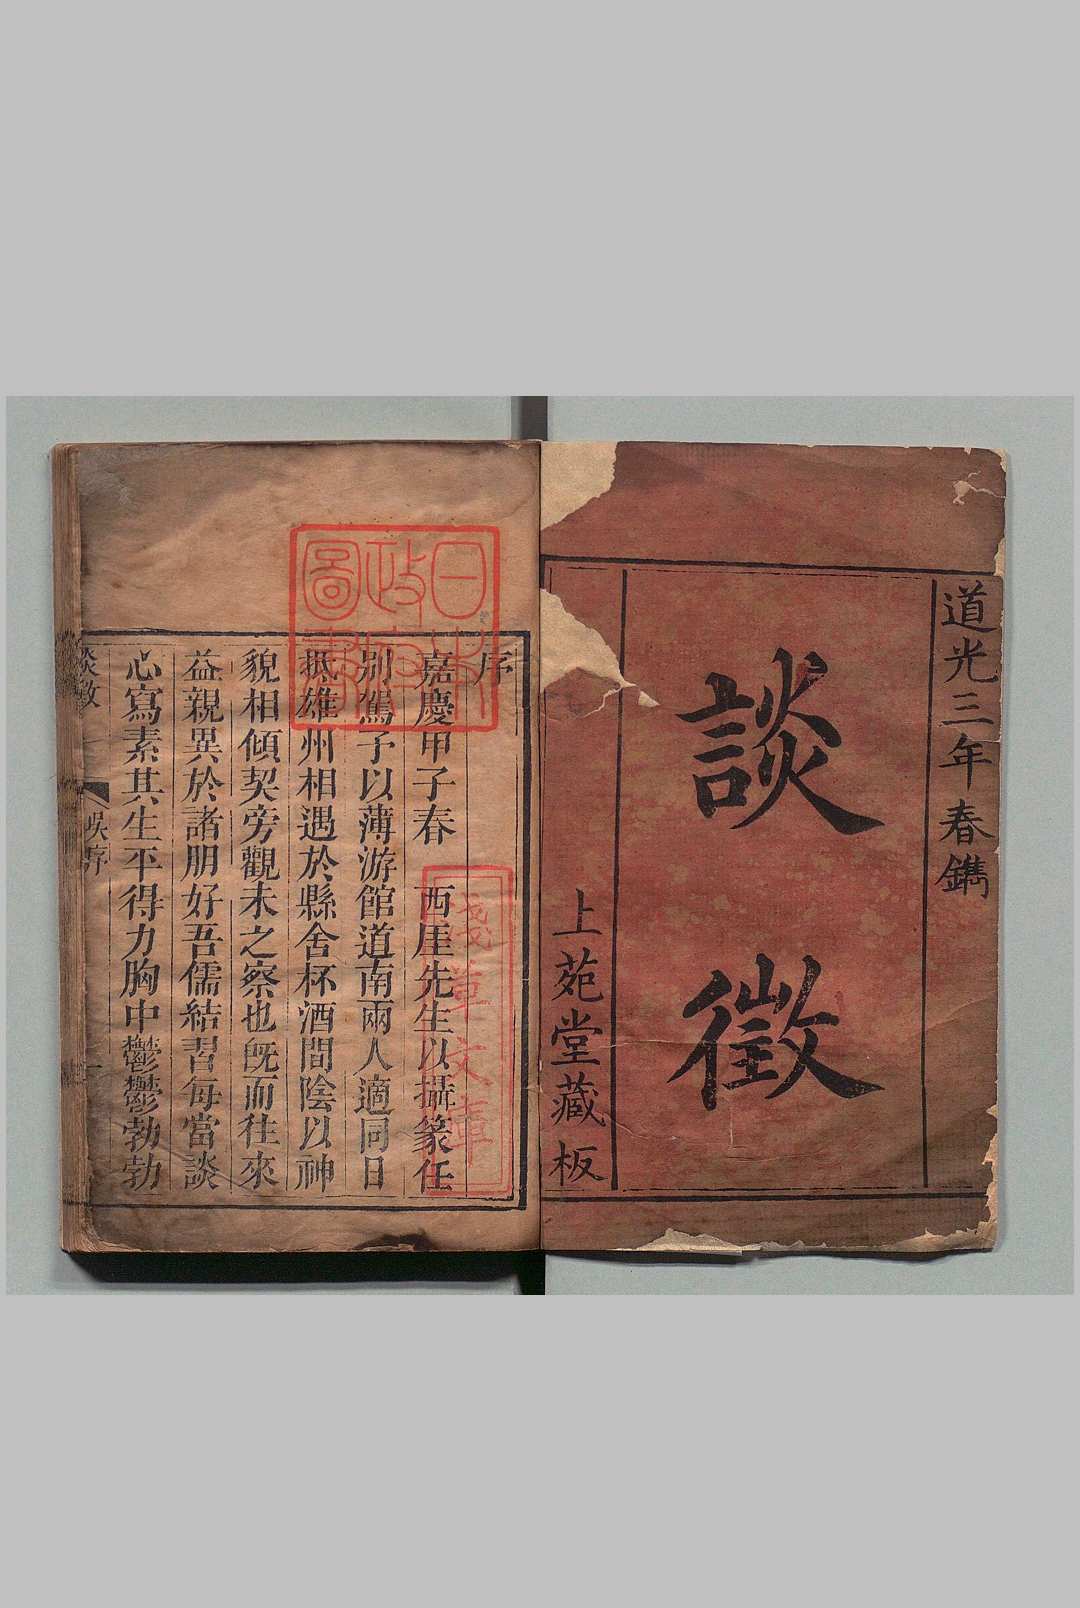 道光三年春鐫
談徵
上苑堂藏板
序
嘉慶甲子春 西厓先生以攝篆任
別駕予以薄游館道南兩人適同日
抵雄州相遇於縣舍杯酒間陰以神
貌相傾契旁觀未之察也旣而往來
益親異於諸朋好吾儒結習每當談
心寫素其生平得力胸中鬱鬱勃勃
談徵 吳序 一
日本政府圖書
淺草文庫